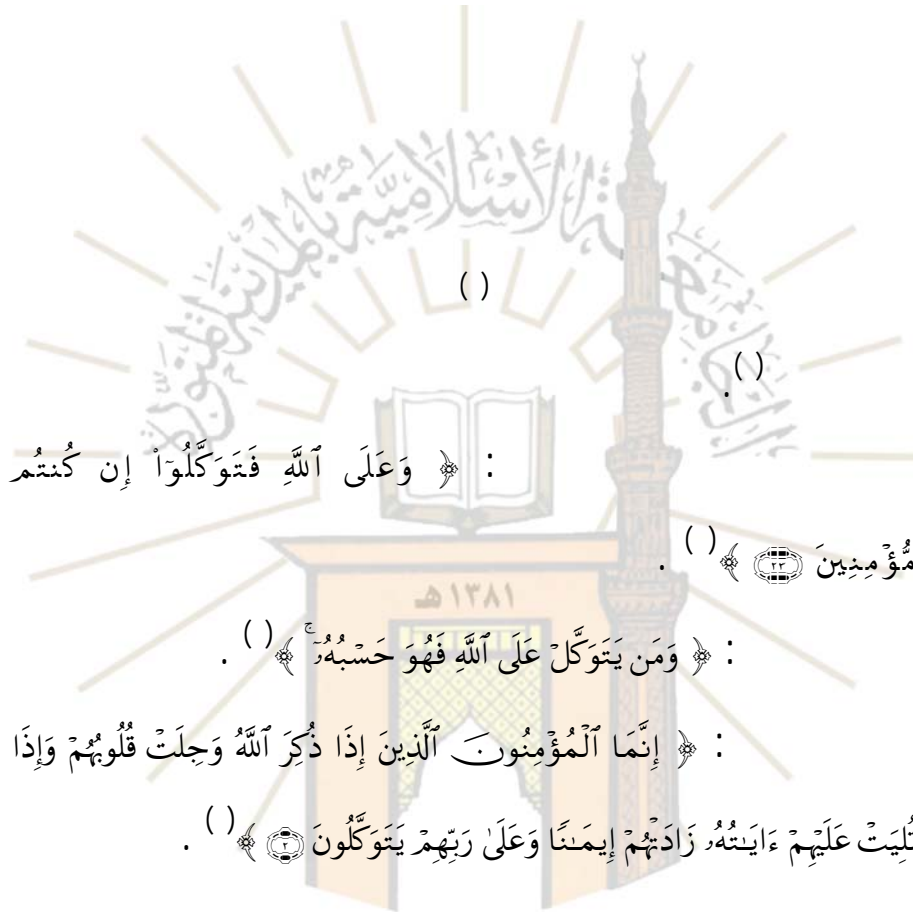 الجامعة الإسلامية بالمدينة المنورة
( )
( ).
: ﴿ وَعَلَى ٱللَّهِ فَتَوَكَّلُوٓاْ إِن كُنتُم
مُّؤۡمِنِينَ ٢٣ ﴾( ) .
١٣٨١ هـ
: ﴿ وَمَن يَتَوَكَّلۡ عَلَى ٱللَّهِ فَهُوَ حَسۡبُهُۥٓۚ ﴾( ) .
: ﴿ إِنَّمَا ٱلۡمُؤۡمِنُونَ ٱلَّذِينَ إِذَا ذُكِرَ ٱللَّهُ وَجِلَتۡ قُلُوبُهُمۡ وَإِذَا
تُلِيَتۡ عَلَيۡهِمۡ ءَايَٰتُهُۥ زَادَتۡهُمۡ إِيمَٰنٗا وَعَلَىٰ رَبِّهِمۡ يَتَوَكَّلُونَ ٢ ﴾( ) .